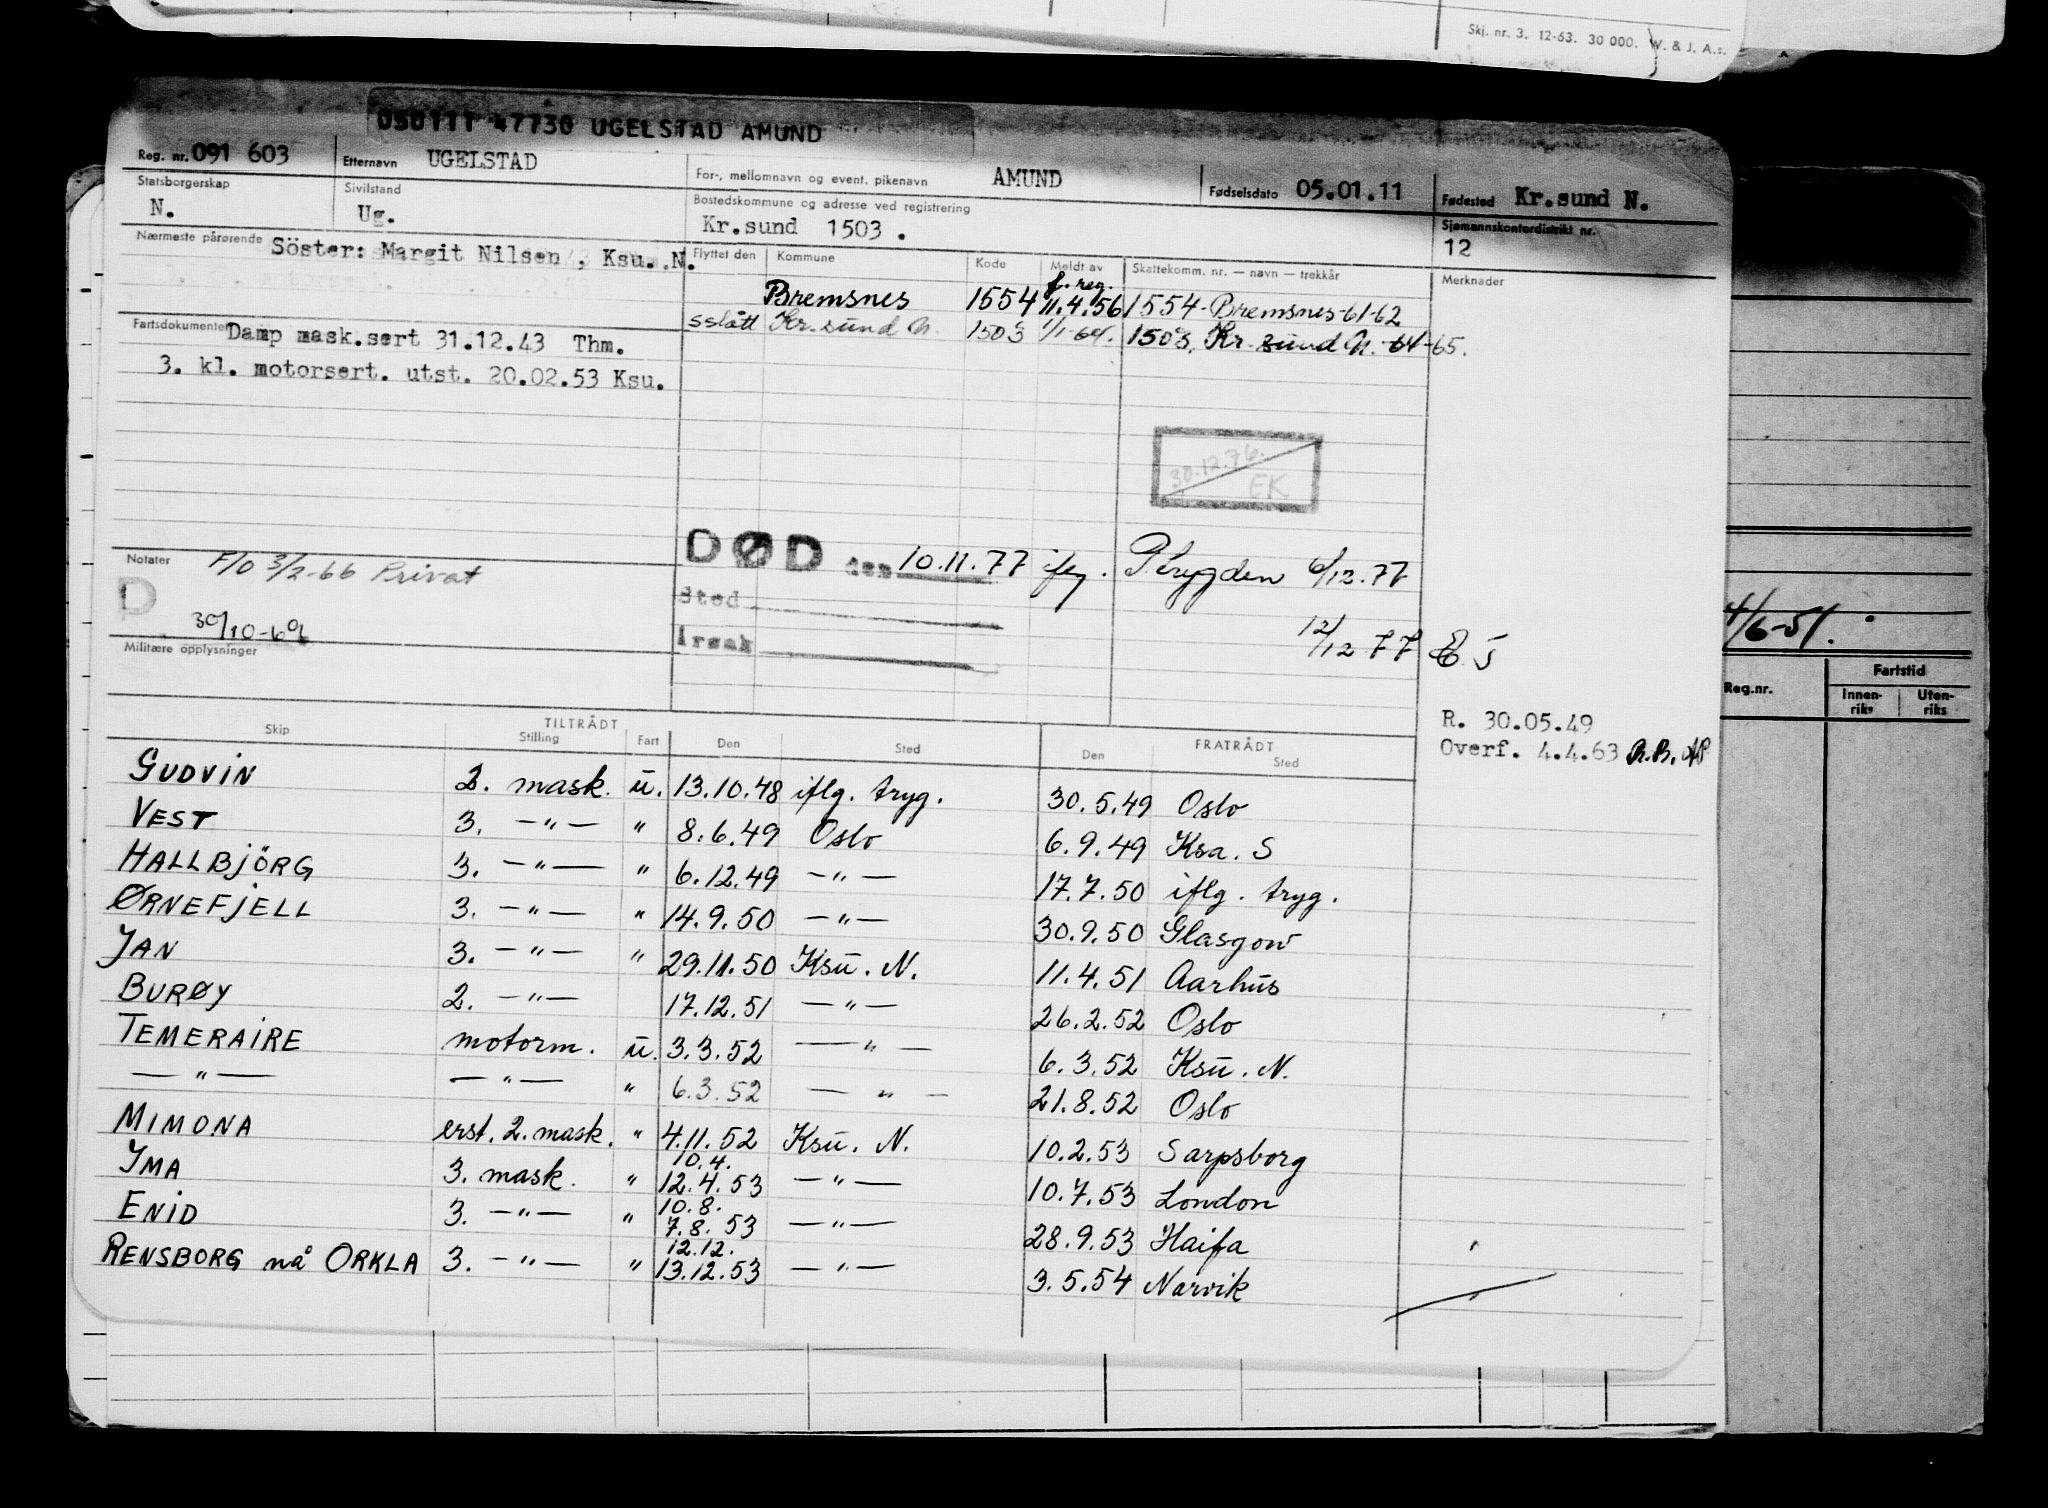 Skj. nr. 3. 12-63. 30 000. W. & J. A.s.
050111 47730 UGELSTAD AMUND
Reg. nr. 091 603 Etternavn UGELSTAD For-, mellomnavn og event. pikenavn AMUND Fødselsdato 05.01.11 Fødested Kr.sund N.
Statsborgerskap N. Sivilstand Ug. Bostedskommune og adresse ved registrering Kr.sund 1503. Sjømannskontordistrikt nr. 12
Nærmeste pårørende Söster: Margit Nilsen, Ksu. N. Flyttet den Kommune Kode Meldt av Skattekomm. nr. — navn — trekkår Merknader
f. reg.
Bremsnes 1554 11.4.56 1554-Bremsnes-61-62
sslått Kr.sund N. 1503 1/1-64. 1503. Kr.sund N.-64-65.
Fartsdokumenter Damp mask.sert 31.12.43 Thm.
3. kl. motorsert. utst. 20.02.53 Ksu.
30.12.76.
EK
Notater F/O 3/2-66 Privat
D
30/10-69
DØD den 10.11.77 iflg. P.trygden 6/12.77
Sted
Årsak
12/12 77 E J
Militære opplysninger
4/6-51.
Reg.nr. Fartstid
Innen-riks Uten-riks
R. 30.05.49
Overf. 4.4.63 R.B. AP
Skip TILTRÅDT Stilling Fart Den Sted FRATRÅDT Den Sted
GUDVIN 2. mask. u. 13.10.48 iflg. tryg. 30.5.49 Oslo
VEST 3. —"— " 8.6.49 Oslo 6.9.49 Ksa. S
HALLBJÖRG 3. —"— " 6.12.49 —"— 17.7.50 iflg. tryg.
ØRNEFJELL 3. —"— " 14.9.50 —"— 30.9.50 Glasgow
JAN 3. —"— " 29.11.50 Ksu. N. 11.4.51 Aarhus
BURØY 2. —"— 17.12.51 —"— 26.2.52 Oslo
TEMERAIRE motorm. u. 3.3.52 —"— 6.3.52 Ksu. N.
—"— —"— " 6.3.52 —"— 21.8.52 Oslo
MIMONA erst. 2. mask. " 4.11.52 Ksu. N. 10.2.53 Sarpsborg
10.4.
IMA 3. mask. " 12.4.53 —"— 10.7.53 London
10.8.
ENID 3. —"— " 7.8.53 —"— 28.9.53 Haifa
12.12.
RENSBORG nå ORKLA 3. —"— " 13.12.53 —"— 3.5.54 Narvik